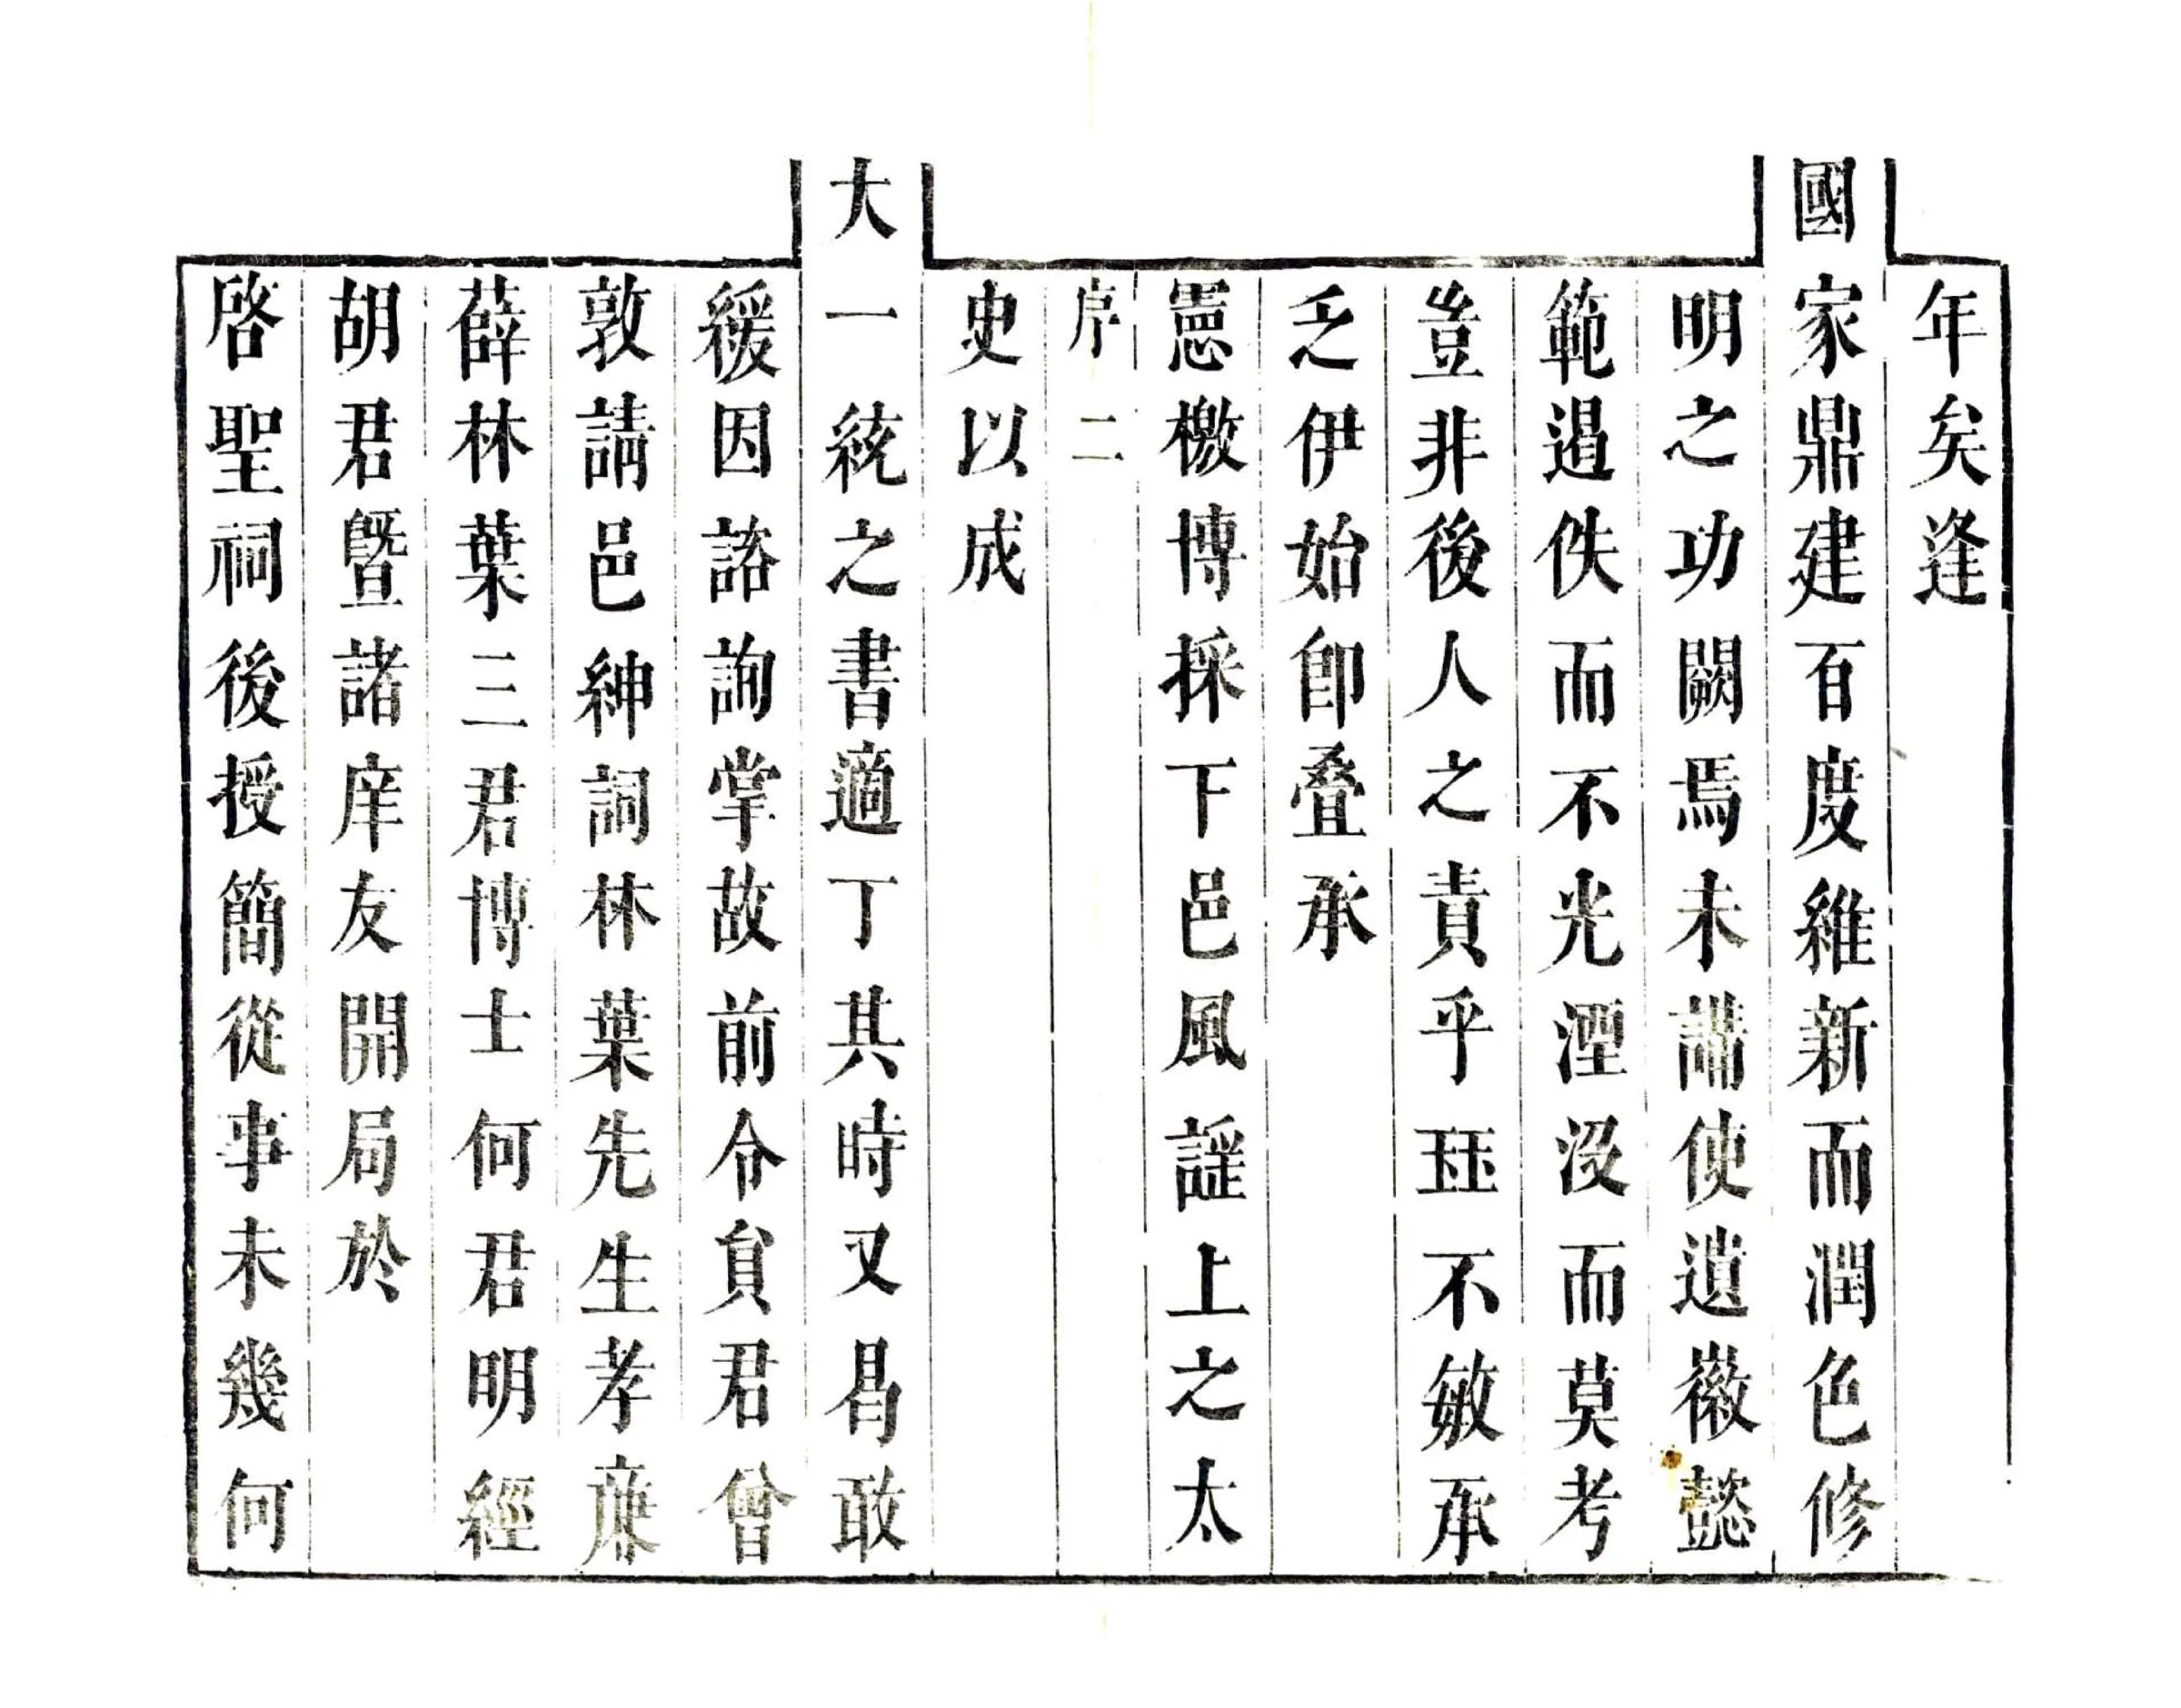 年矣逢
國家鼎建百度維新而潤色修
明之功闕焉未講使遺徽懿
範遏佚而不光湮没而莫考
豈非後人之責乎珏不敏承
乏伊始卽叠承
憲檄博採下邑風謡上之太
序 二
史以成
大一統之書適丁其時又曷敢
緩因諮詢掌故前令貟君曾
敦請邑紳詞林葉先生孝廉
薛林葉三君博士何君明經
胡君暨諸庠友開局於
啓聖祠後授簡從事未幾何